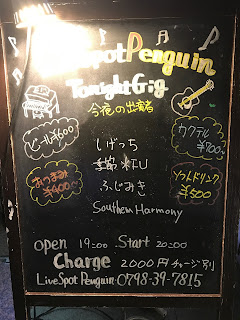 Spot Penguin
Tonight Gig
今夜の出演者
ビール¥600
カクテル
¥700~
しげっち
季節
おつまみ
¥400~
ソフトドリンク
¥500
ふじみき
Southern Harmony
open 19:00 Start 20:00
Charge 2000円 チャージ別
Live Spot Penguin 0798-39-7815